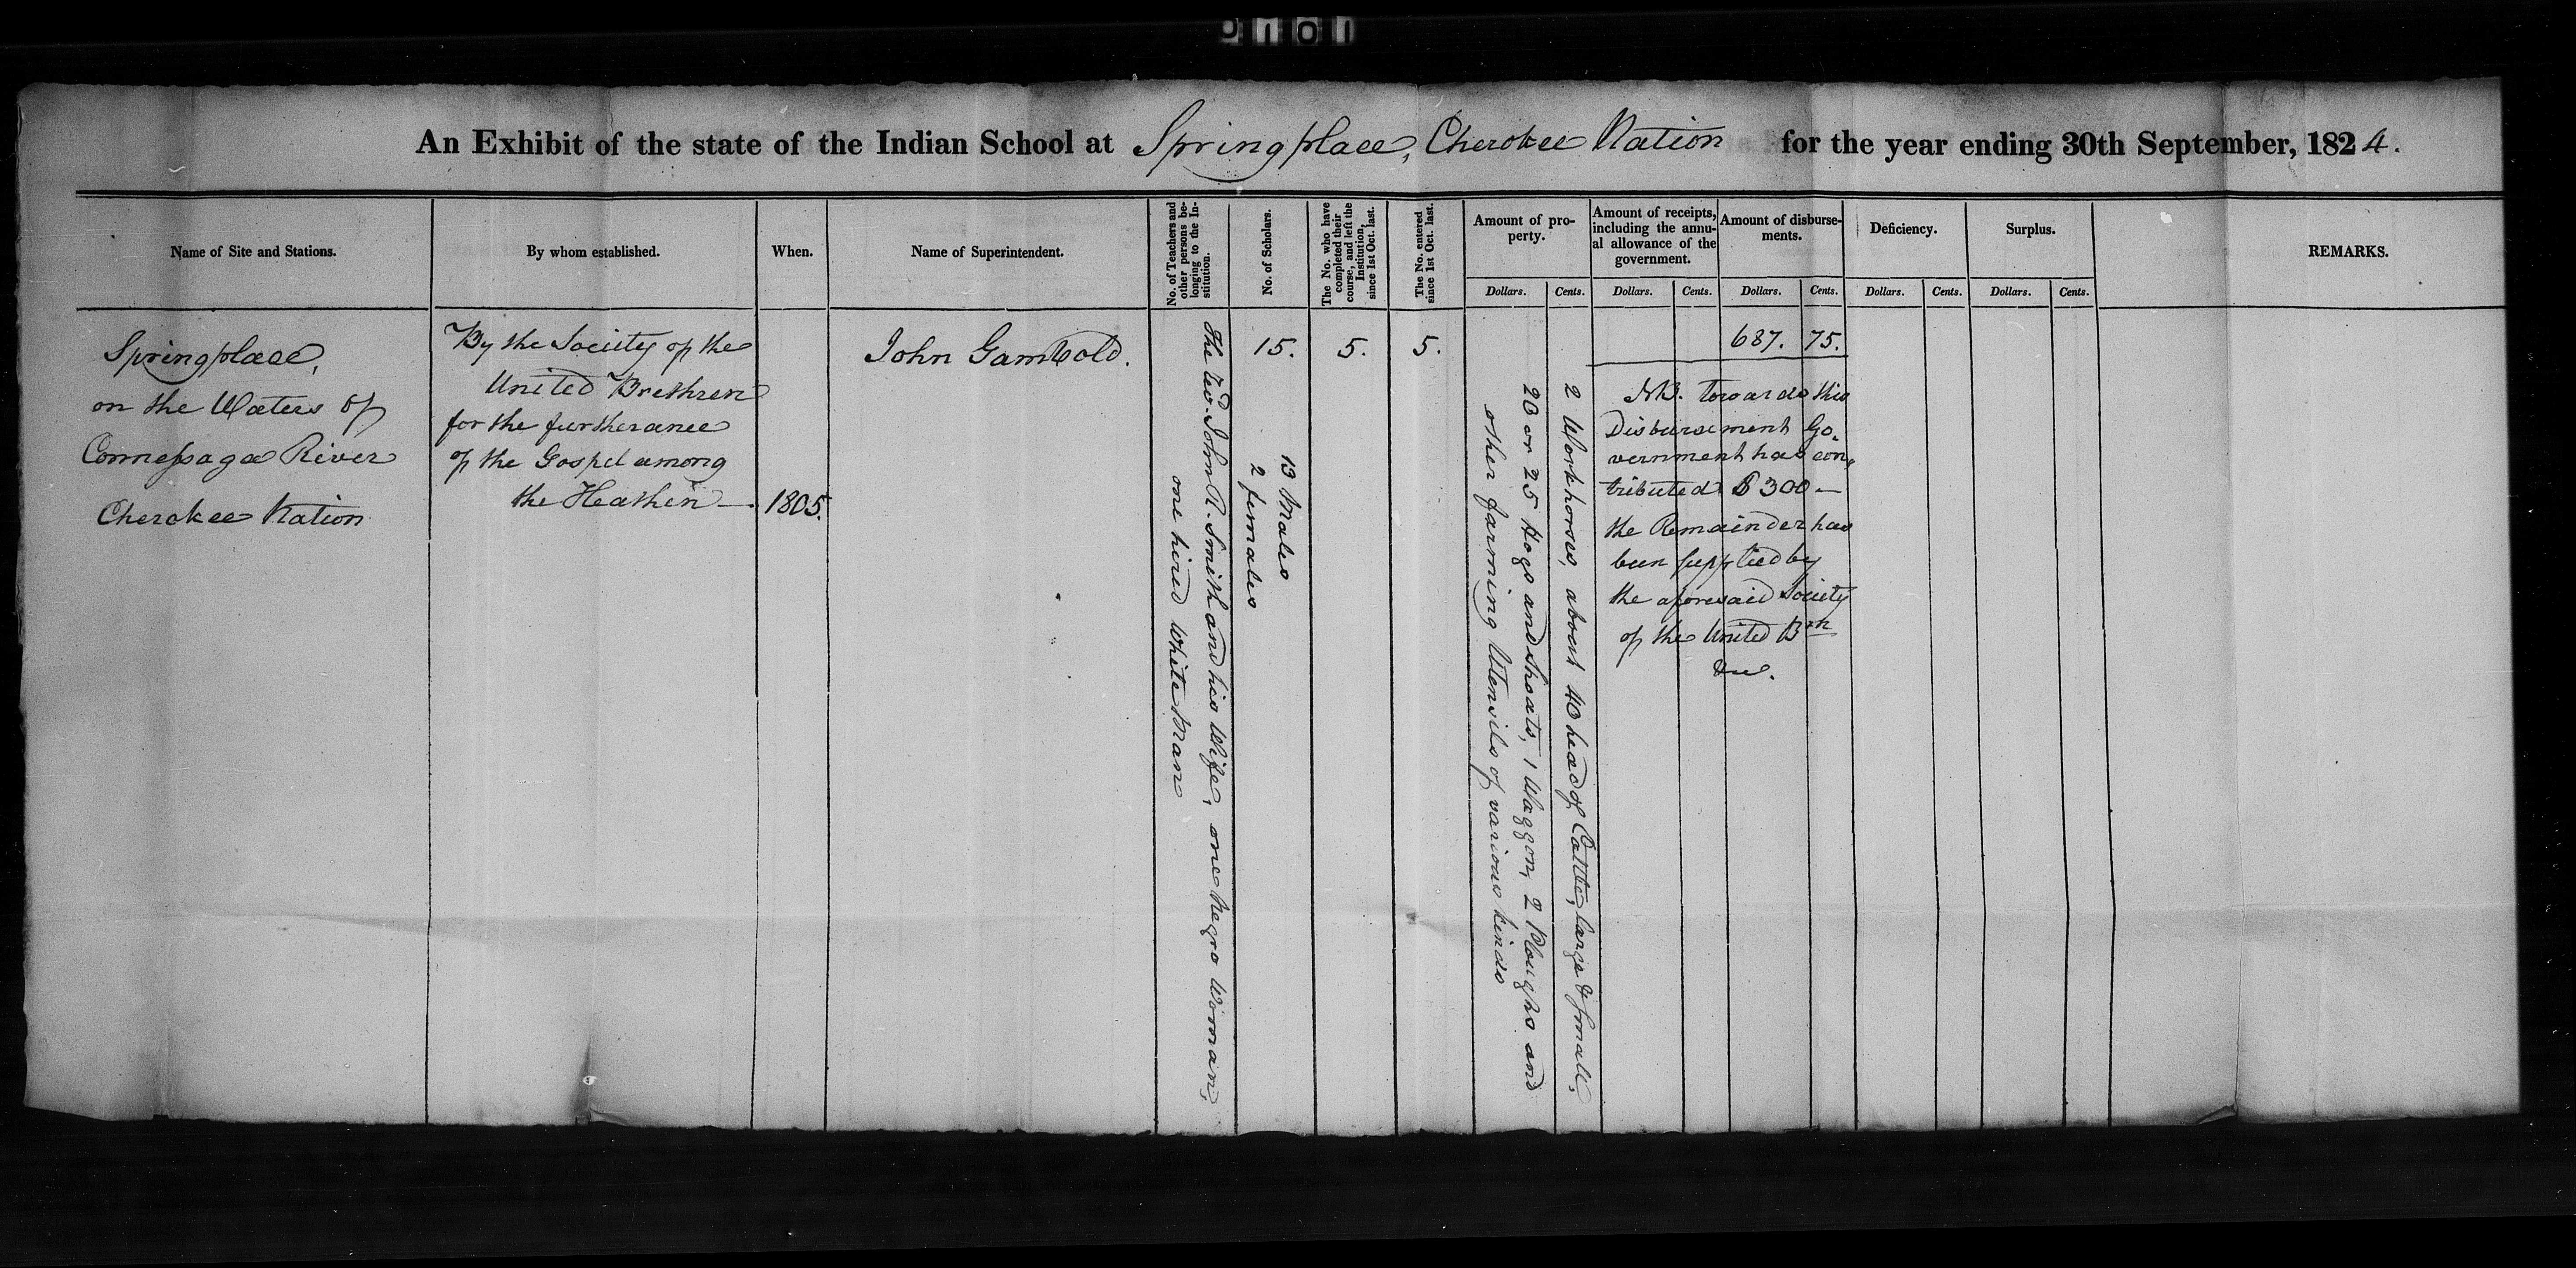 An Exhibit of the state of the Indian School at Springplace, Cherokee Nation for the year ending 30th September, 1824.
Name of Site and Stations.
By whom established.
When.
Name of Superintendent.
No. of Teachers and
other persons be-
longing to the In-
stitution.
No. of Scholars.
The No. who have
completed their
course, and left the
Institution,
since 1st Oct. last.
The No. entered
since 1st Oct. last.
Amount of pro-
perty.
Dollars.
Cents.
Amount of receipts,
including the annu-
al allowance of the
government.
Dollars.
Cents.
Amount of disburse-
ments.
Dollars.
Cents.
Deficiency.
Dollars.
Cents.
Surplus.
Dollars.
Cents.
REMARKS.
Springplace,
on the Waters of
Connessaga River
Cherokee Nation
By the Society of the
United Brethren
for the furtherance
of the Gospel among
the Heathen —
1805.
John Gambold.
The Revd. John R. Smith and his Wife, one Negro Woman,
one hired white Man
15.
13 Males
2 females
5.
5.
2 Workhorses, about 40 head of Cattle, large & small,
20 or 25 Hogs and Shoats, 1 Waggon, 2 Ploughs and
other farming Utensils of various kinds
687. 75.
NB. towards this
Disbursement Go-
vernment has con-
tributed $300 —
the Remainder has
been supplied by
the aforesaid Society
of the United Brn
&c.